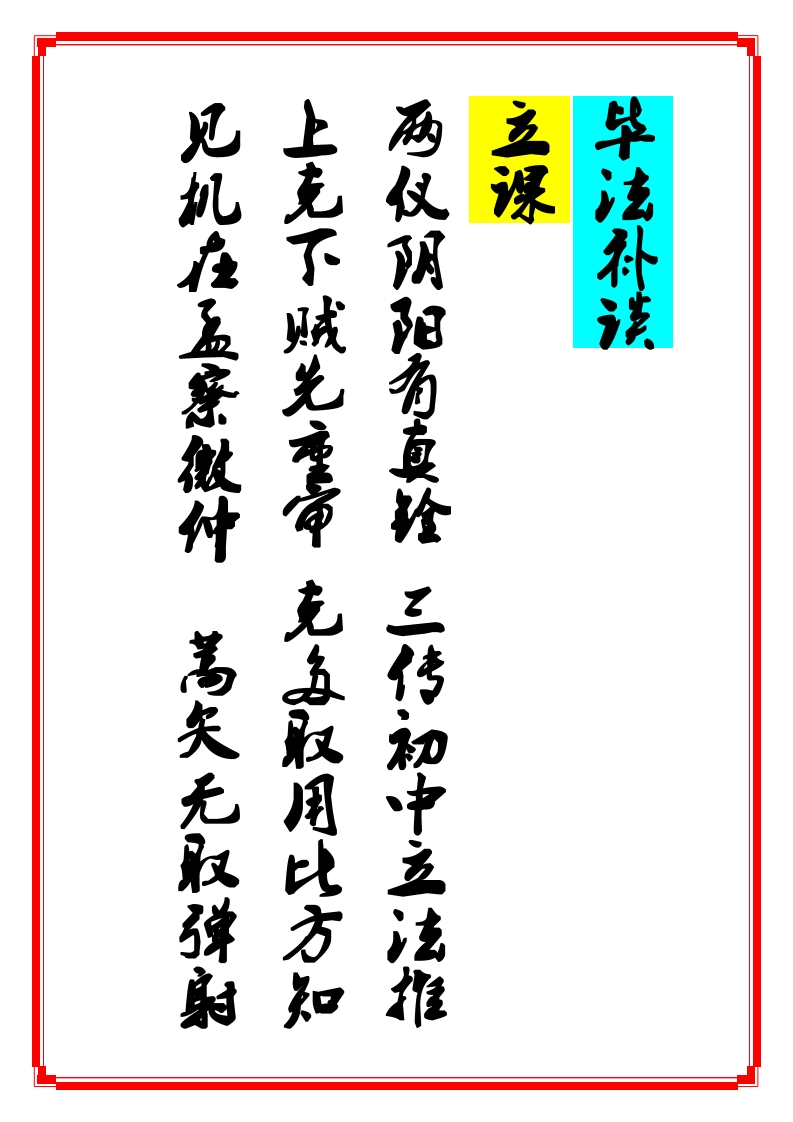 毕法补谈
立课
两仪阴阳有真铨 三传初中立法推
上克下贼先重审 克多取用比方知
见机在孟察微仲 蒿矢无取弹射